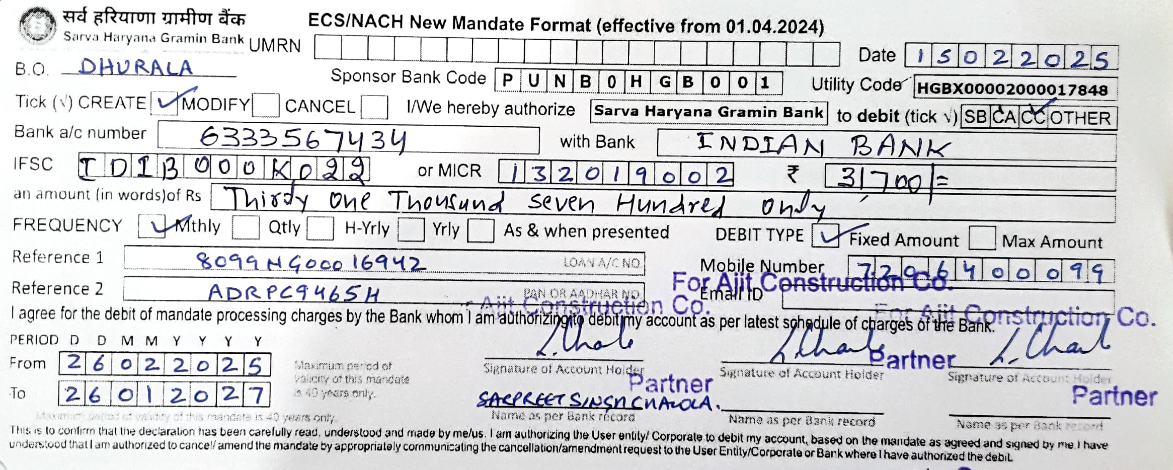 सर्व हरियाणा ग्रामीण बैंक
Sarva Haryana Gramin Bank
ECS/NACH New Mandate Format (effective from 01.04.2024)
UMRN
Date 15022025
B.O. DHURALA
Sponsor Bank Code PUNB0HGB001
Utility Code HGBX00002000017848
Tick (√) CREATE ✓ MODIFY CANCEL I/We hereby authorize Sarva Haryana Gramin Bank to debit (tick √) SB CA CC OTHER
Bank a/c number 6333567434 with Bank INDIAN BANK
IFSC IDIB000K022 or MICR 132019002 ₹ 31700/=
an amount (in words)of Rs Thirty one Thousand seven Hundred only
FREQUENCY ✓ Mthly Qtly H-Yrly Yrly As & when presented DEBIT TYPE ✓ Fixed Amount Max Amount
Reference 1 8099MG00016942 LOAN A/C NO. Mobile Number 7206400099
Reference 2 ADRPC9465H PAN OR AADHAR NO Email ID
For Ajit Construction Co.
Ajit Construction Co.
For Ajit Construction Co.
I agree for the debit of mandate processing charges by the Bank whom I am authorizing to debit my account as per latest schedule of charges of the Bank.
PERIOD D D M M Y Y Y Y
From 26022025
To 26012027
Maximum period of
validity of this mandate
is 40 years only.
Signature of Account Holder Signature of Account Holder Signature of Account Holder
Partner Partner Partner
Name as per Bank record Name as per Bank record Name as per Bank record
Maximum period of validity of this mandate is 40 years only.
This is to confirm that the declaration has been carefully read, understood and made by me/us. I am authorizing the User entity/ Corporate to debit my account, based on the mandate as agreed and signed by me. I have
understood that I am authorized to cancel/ amend the mandate by appropriately communicating the cancellation/amendment request to the User Entity/Corporate or Bank where I have authorized the debit.